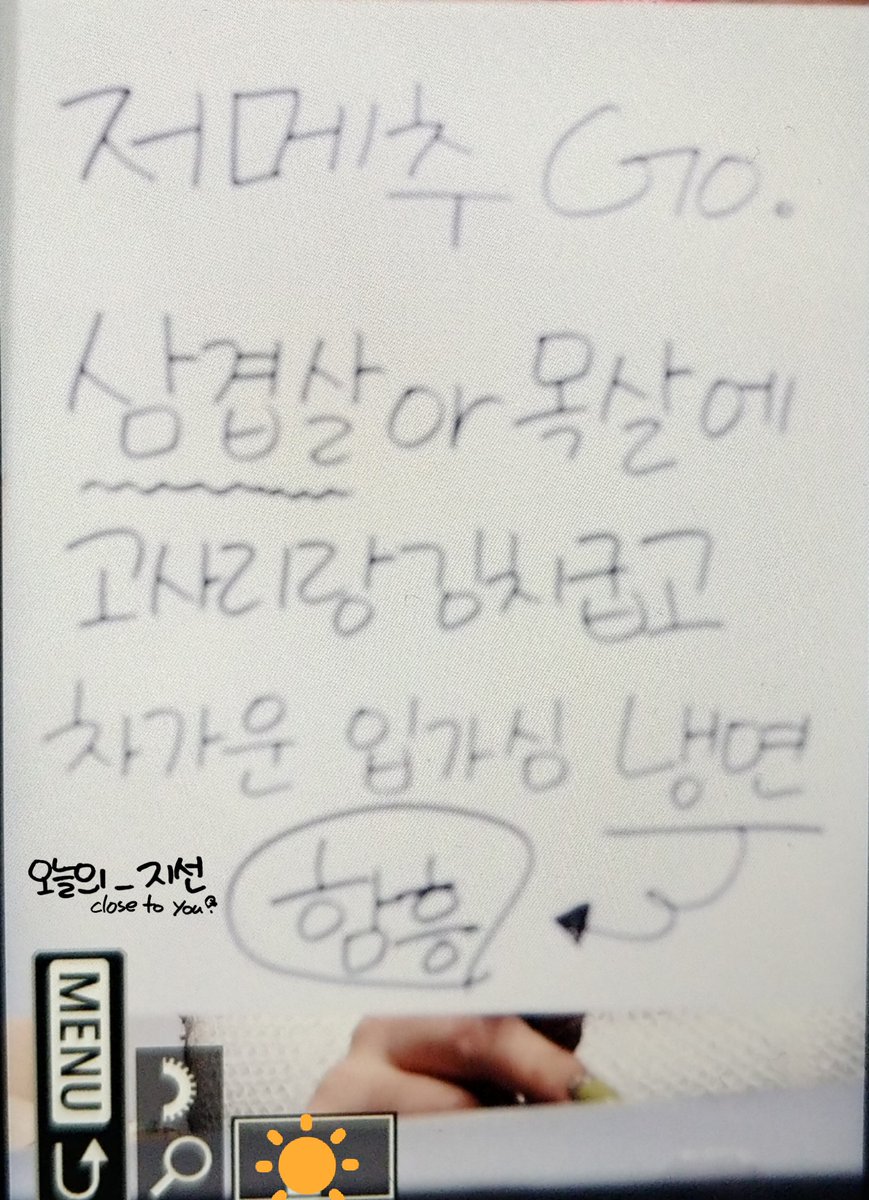 저메추 Go.
삼겹살아 목살에
고사리랑 김치굽고
차가운 입가심 냉면
함흥
오늘의_지선
close to you?
MENU